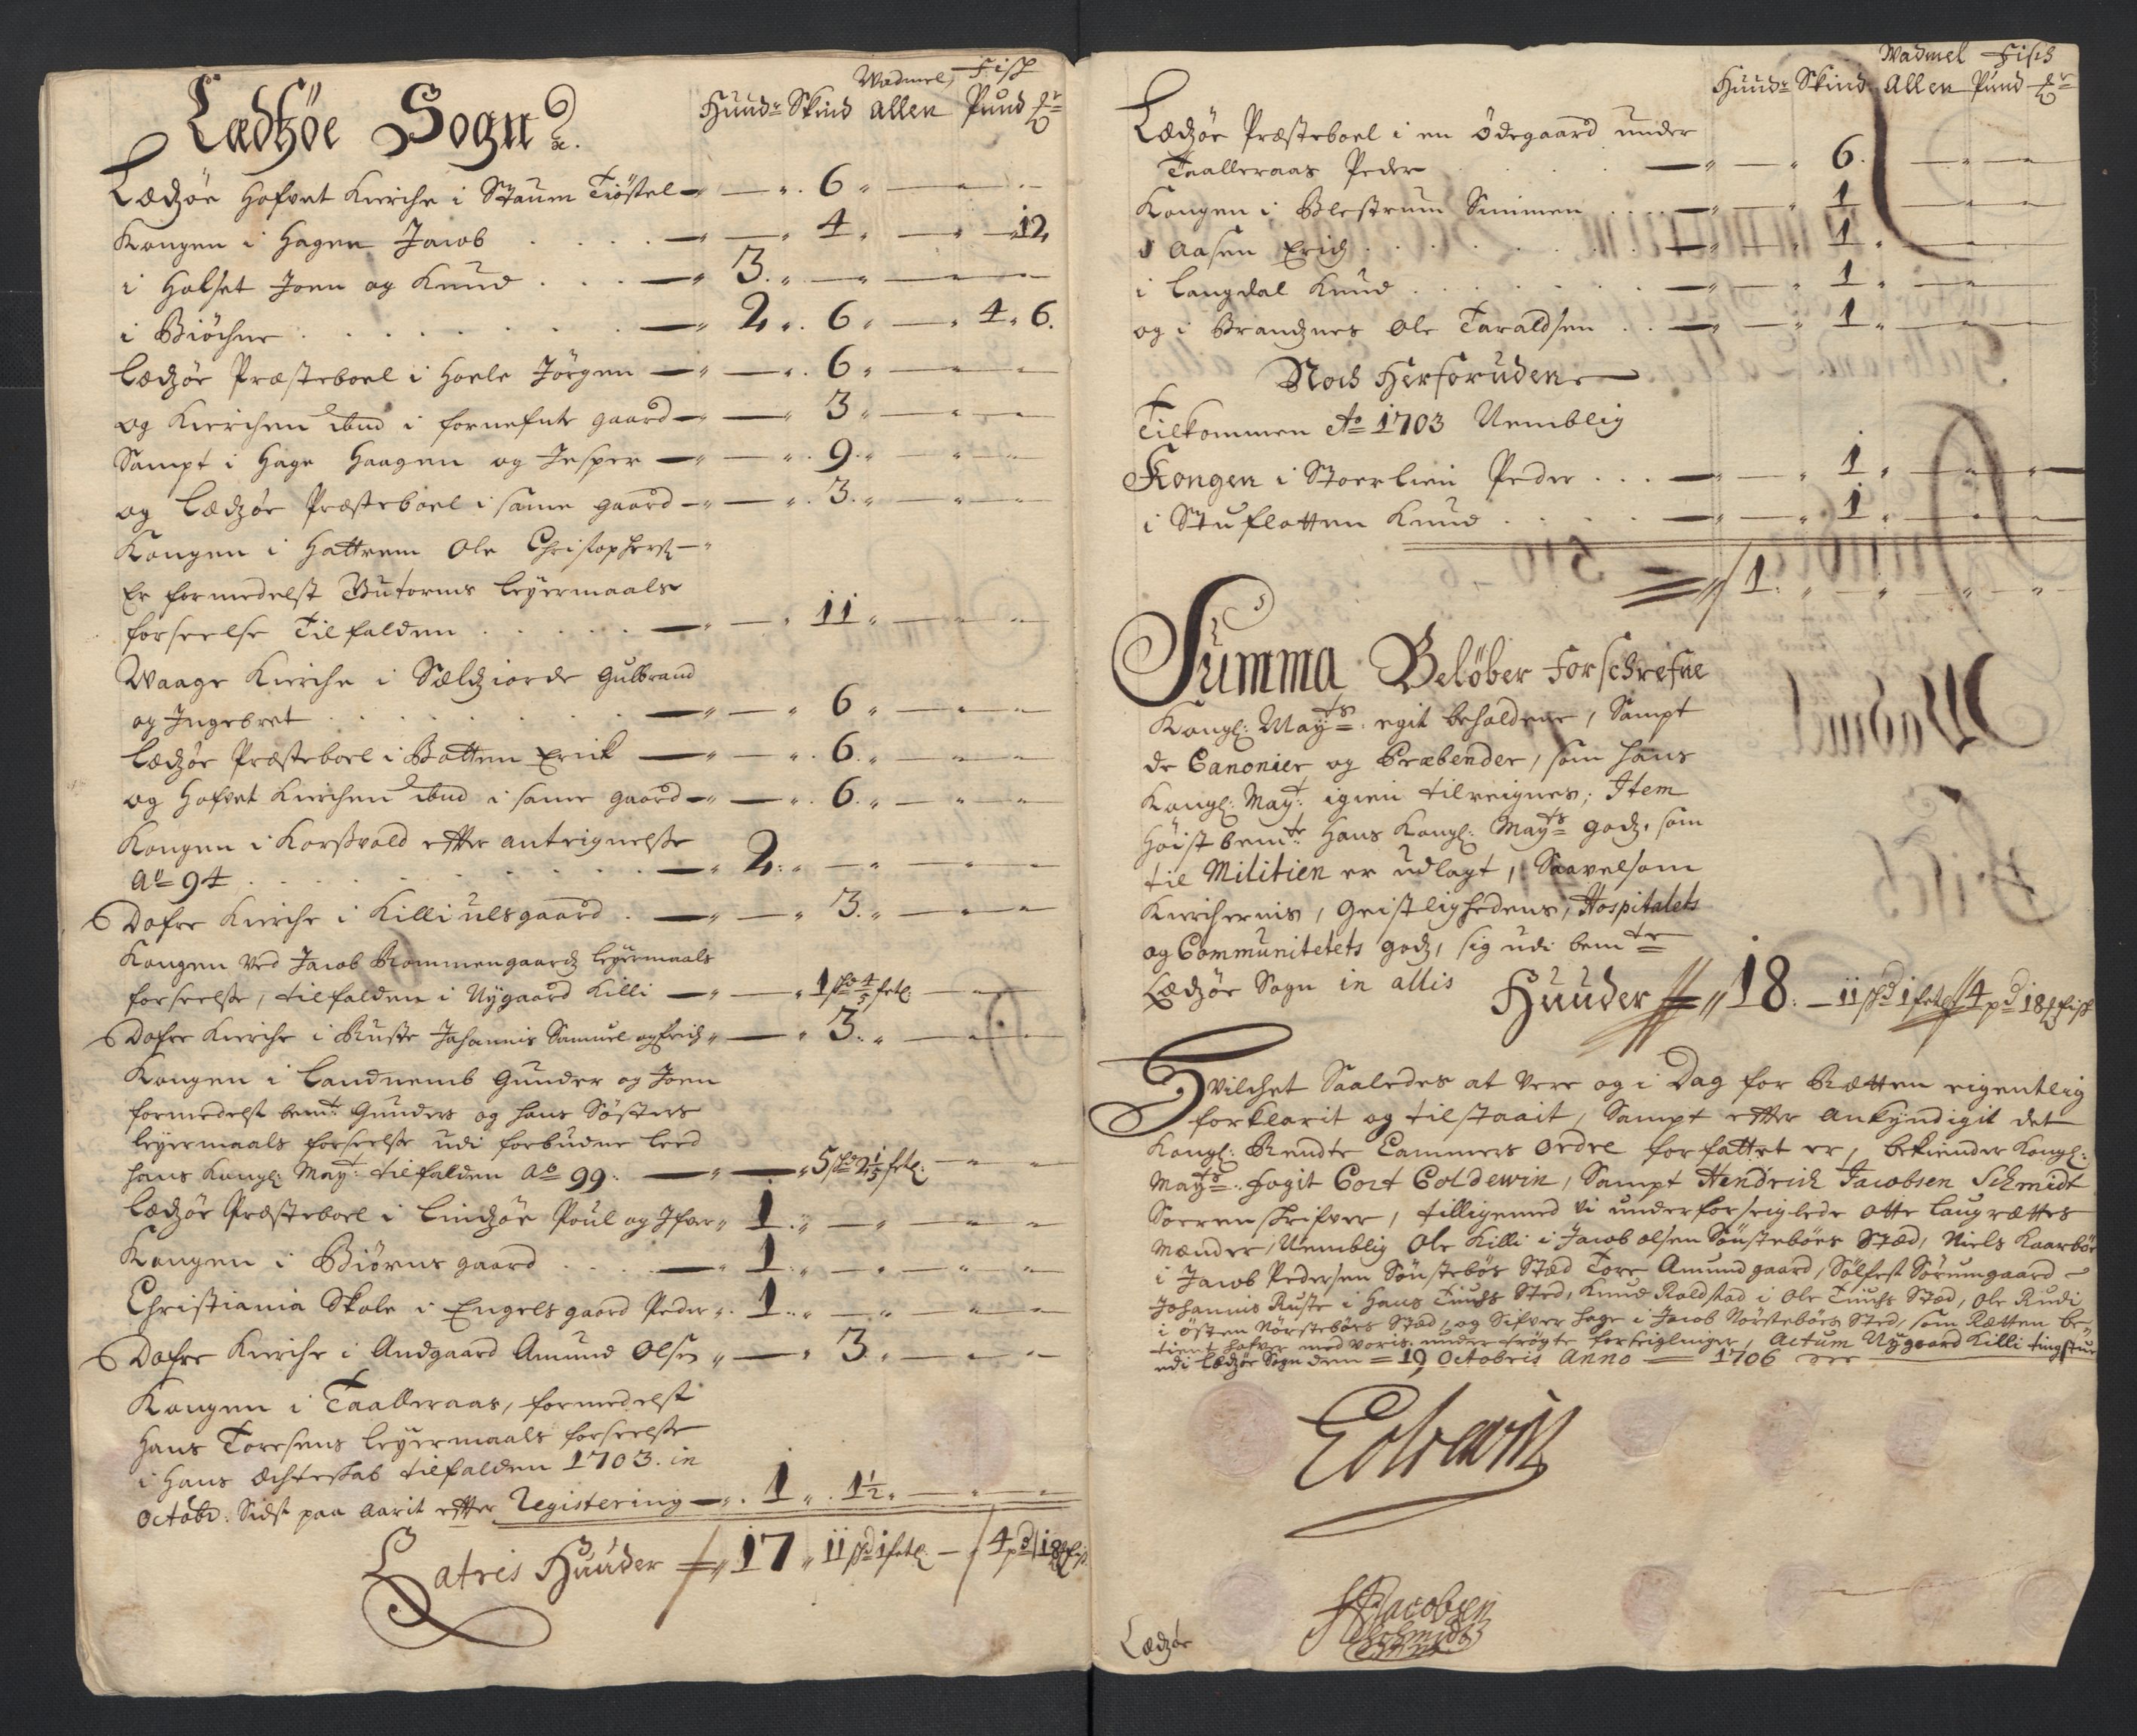 Wadmel Fisch
Lædzöe Sogn
Huuder Skind Allen Pund
Lædzöe Hofvet Kierche i Staum Tiöstel — „ — „ 6 „ — „ —
Kongen i Hagen Jacob . . . — „ — „ 4 „ — „ — 12
i Holset Joen og Knud . . . — „ 3 „ — „ — „ —
i Biöchne . . . — „ 2 „ 6 „ — „ 4 „ 6.
Lædzöe Præsteboel i Hoele Jörgen — „ — „ 6 „ — „ —
og Kierchen ibnd i fornefnte gaard — „ — „ 3 „ — „ —
Sampt i Hage Haagen og Jesper — „ — „ 9 „ — „ —
og Lædzöe Præsteboel i same gaard — „ — „ 3 „ — „ —
Kongen i Hattrem Ole Christophers —
Er formedelst Gutorms leyermaals
forseelse Tilfalden . . . — „ — „ 11 „ — „ —
Waage Kierche i Sælziorde Gulbrand
og Ingebret . . . — „ — „ 6 „ — „ —
Lædzöe Præsteboel i Botten Erick — „ — „ 6 „ — „ —
og Hofvet Kierchen ibnd i same gaard — „ — „ 6 „ — „ —
Kongen i Korsvold effter anteignelse
Ao 94 . . . — „ 2 „ — „ — „ —
Dofre Kierche i Killi ulsgaard . — „ — „ 3 „ — „ —
Kongen ved Jacob Rommengaards leyermaals
forseelse, tilfalden i Nygaard Killi — „ — „ 1 4/5 fetl. — „ —
Dofre Kierche i Ruste Johannis Samuel og Erich „ — „ 3 „ — „ —
Kongen i Landnemb Gunder og Joen
formedelst bemte Gunders og hans Søsters
leyermaals forseelse udi forbudne leed
hans Kongl: Mayt: tilfalden Ao 99. — „ — „ 5 2 1/5 fetl: — „ —
Lædzöe Præsteboel i Lindzöe Poul og Ifver „ 1 „ — „ — „ —
Kongen i Biörns gaard . . . — „ 1 „ — „ — „ —
Christiania Skole i Engelsgaard Peder „ 1 „ — „ — „ —
Dofre Kierche i Andgaard Amund Olsen „ — „ 3 „ — „ —
Kongen i Taalleraas, formedelst
Hans Toresens leyermaals forseelse
i Hans Echteskab tilfalden 1703. in
Octobr: Sidst paa aarit effter Registering — „ 1 „ 1 1/2 „ — „ —
Latris Huuder 17 „ 11 skd 1 fetl: — 4 pd 18 fisk
Wadmel Fisch
Huuder Skind Allen Pund
Lædzöe Præsteboel i en Ödegaard under
Taalleraas Peder . . . — „ — „ 6. — „ —
Kongen i Blestrum Simmen . . . — „ — „ 1 — „ —
i Aasen Erich . . . — „ — „ 1 „ — „ —
i Langdal Knud . . . — „ — „ 1 „ — „ —
og i Brandznes Ole Taraldsen . . — „ — „ 1 „ — „ —
Noch Herforuden
Tilkommen Ao 1703 Nemblig
Kongen i Stoerlien Peder . . . — „ — „ 1 „ — „ —
i Stuflotten Knud . . . — „ — „ 1 „ — „ —
1. „ — „ — „ —
Summa Belöber Forschrefne
Kongl: Mayts: egit beholdene, Sampt
de Canonier og Præbender, som hans
Kongl: Mayt: igien tilreignes; Item
Höist bemte Hans Kongl: Mayts godz, som
til Militien er udlagt, Saavelsom
Kierchernis, Geistlighedens, Hospitalets
og Communitetets godz, sig udi bemte
Lædzöe Sogn in allis Huuder 18. — 11 skd 1 fetl 4 pd 18 fisk
Hvilchet Saaledes at vere og i Dag for Rætten eigentlig
forklarit og tilstaait, Sampt effter ankyndigit det
Kongl: Rendte Cammers Ordre forfattet er, bekiender Kongl:
Mayts: fogit Cort Coldewin, Sampt Hendrich Jacobsen Schmidt
Sorrenskrifver, tilligemed vi underforseiglede otte Laugrættes
Mænder, Nemblig Ole Killi i Jacob Olsen Sönstebös Stæd, Niels Kaarböe
i Jacob Pedersen Sönstebös Stæd Tore Amundgaard, Sölfest Sörumgaard
Johannis Ruste i Hans Tiuchs Sted, Knud Roldstad i Ole Tiuchs Stæd, Ole Rudi
i Östen Nörstebös Stæd, og Sifver Hage i Jacob Nörstebös Sted, som Rætten be-
tient hafver med voris undertrögte forseiglinger, Actum Nygaard Killi tingstue
udi Lædzöe Sogn den 19 Octobris Anno 1706
Coldewin
HJacobsen
Schmidt
Lædzöe